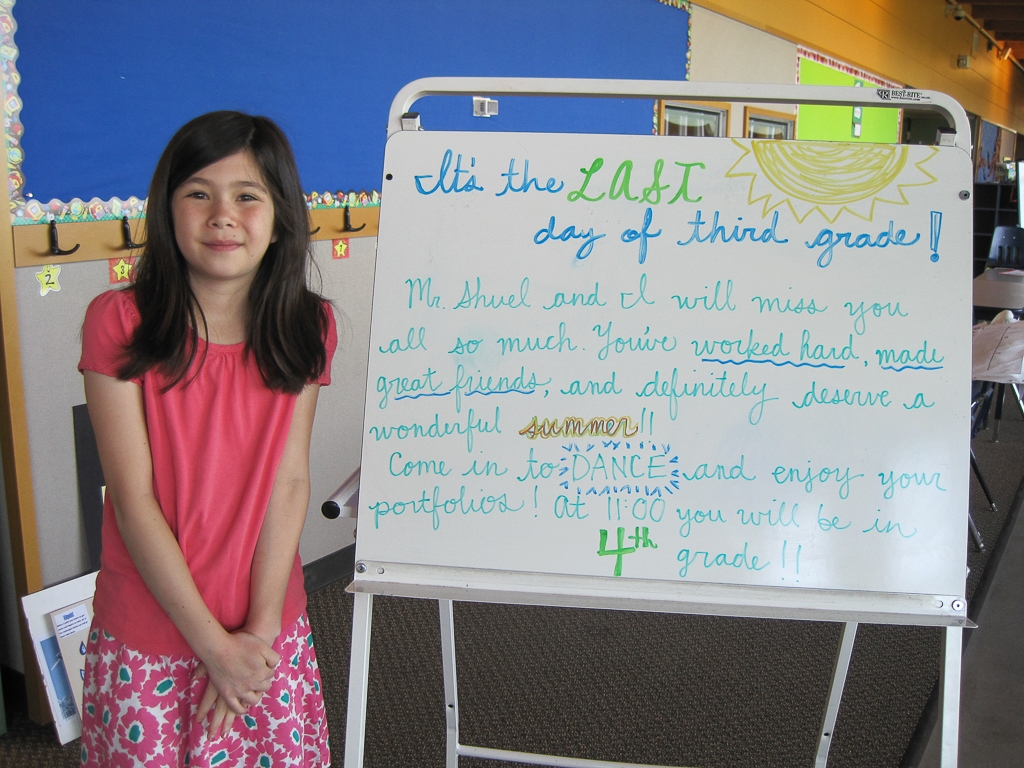 BEST-RITE
It's the LAST
day of third grade!
Mr. Shuel and I will miss you
all so much. You've worked hard, made
great friends, and definitely deserve a
wonderful summer!!
Come in to DANCE and enjoy your
portfolios! At 11:00 you will be in
4th grade!!
2
3
1